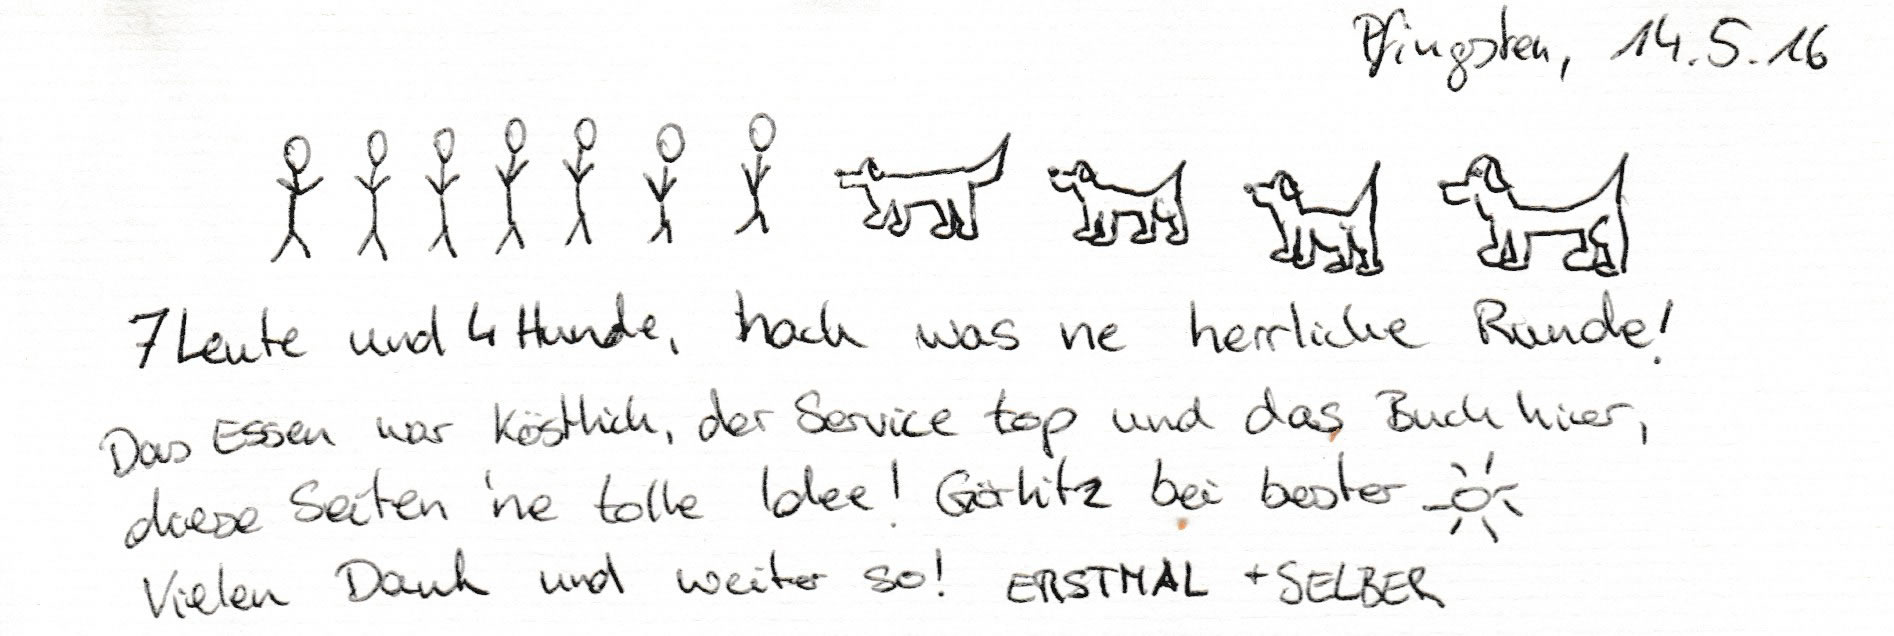 Pfingsten, 14.5.16
7 Leute und 4 Hunde, hach was ne herrliche Runde!
Das Essen war köstlich, der Service top und das Buch hier,
diese Seiten 'ne tolle Idee! Görlitz bei bester
Vielen Dank und weiter so! ERSTMAL + SELBER